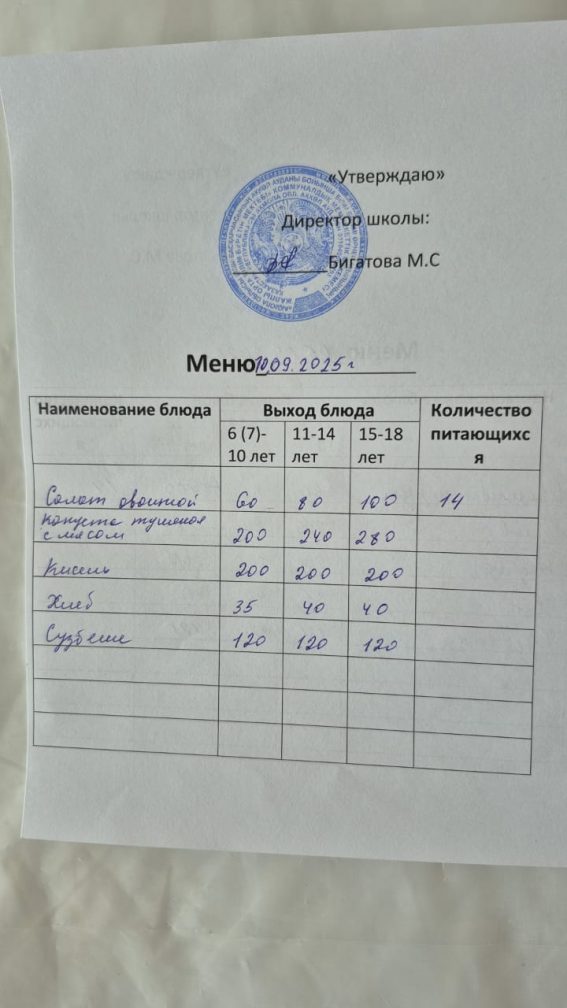 «Утверждаю»
Директор школы:
Бигатова М.С
Меню 10.09.2025 г
Наименование блюда Выход блюда Количество питающихся
6 (7)-10 лет 11-14 лет 15-18 лет
Салат овощной 60 80 100 14
Капуста тушеная с мясом 200 240 280
Кисель 200 200 200
Хлеб 35 40 40
Сузбеше 120 120 120